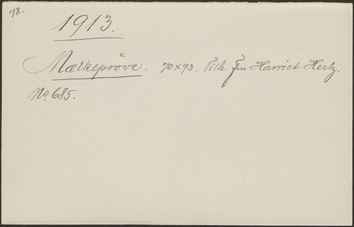 78.
1913.
Malkeprøve. 70x93. Tilh. Frn Harriet Hertz.
No 685.